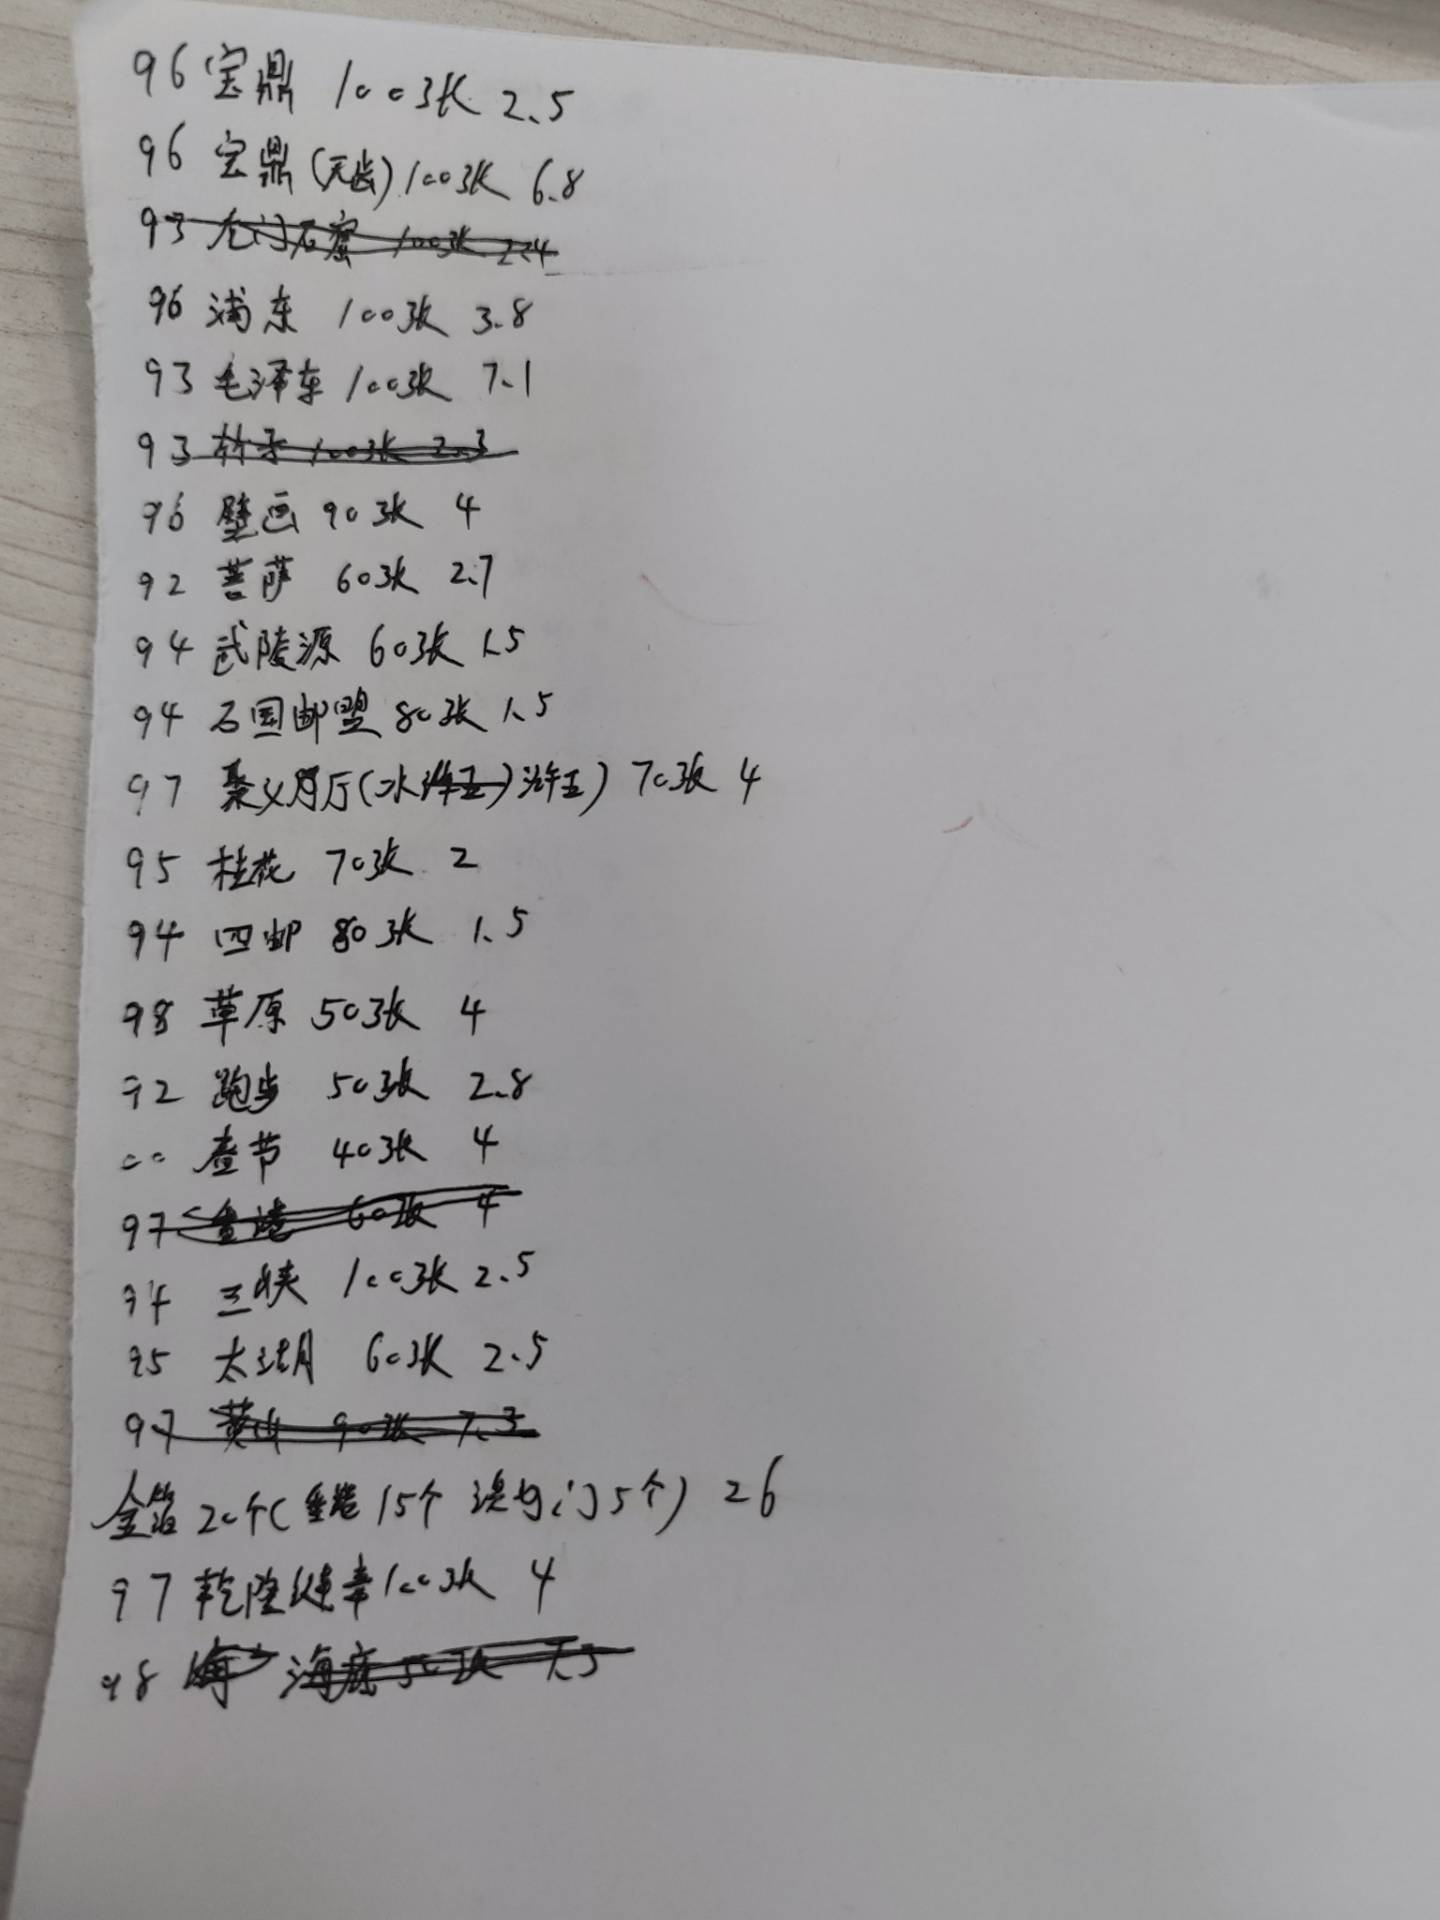 96 宝鼎 100张 2.5
96 宝鼎(无齿) 100张 6.8
93 龙门石窟 100张 2.4
96 浦东 100张 3.8
93 毛泽东 100张 7.1
93 竹子 100张 2.3
96 壁画 90张 4
92 菩萨 60张 2.7
94 武陵源 60张 1.5
94 万国邮盟 80张 1.5
97 聚义厅(水浒五)浒五) 70张 4
95 桂花 70张 2
94 四邮 80张 1.5
98 草原 50张 4
92 跑步 50张 2.8
00 春节 40张 4
97 香港 60张 4
94 三峡 100张 2.5
95 太湖 60张 2.5
97 黄山 90张 7.3
金箔 20个(香港 15个 澳门 5个) 26
97 乾隆 100张 4
98 海 海底 50张 7.5